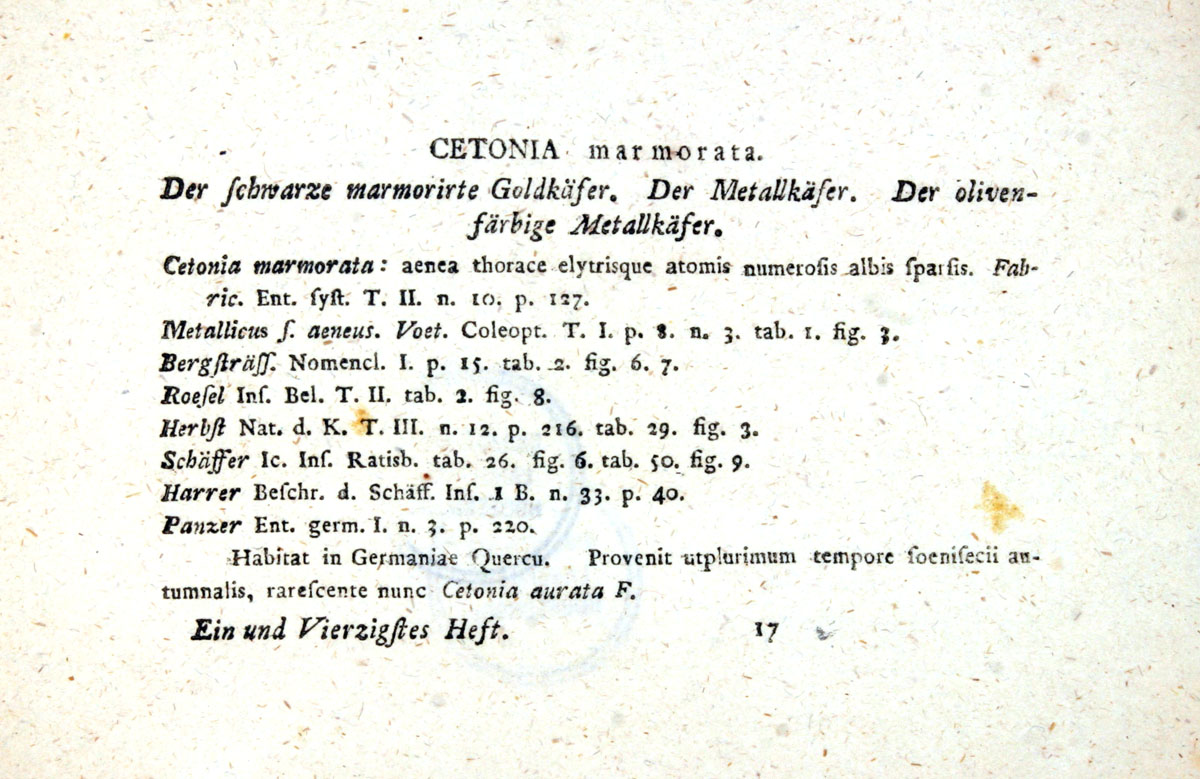 CETONIA marmorata.
Der ſchwarze marmorirte Goldkäfer. Der Metallkäfer. Der oliven-
färbige Metallkäfer.
Cetonia marmorata: aenea thorace elytrisque atomis numeroſis albis ſparſis. Fab-
ric. Ent. ſyſt. T. II. n. 10. p. 127.
Metallicus ſ. aeneus. Voet. Coleopt. T. I. p. 8. n. 3. tab. 1. fig. 3.
Bergſträſſ. Nomencl. I. p. 15. tab. 2. fig. 6. 7.
Roeſel Inſ. Bel. T. II. tab. 2. fig. 8.
Herbſt Nat. d. K. T. III. n. 12. p. 216. tab. 29. fig. 3.
Schäffer Ic. Inſ. Ratisb. tab. 26. fig. 6. tab. 50. fig. 9.
Harrer Beſchr. d. Schäff. Inſ. 1 B. n. 33. p. 40.
Panzer Ent. germ. I. n. 3. p. 220.
Habitat in Germaniae Quercu. Provenit utplurimum tempore foeniſecii au-
tumnalis, rareſcente nunc Cetonia aurata F.
Ein und Vierzigſtes Heft. 17